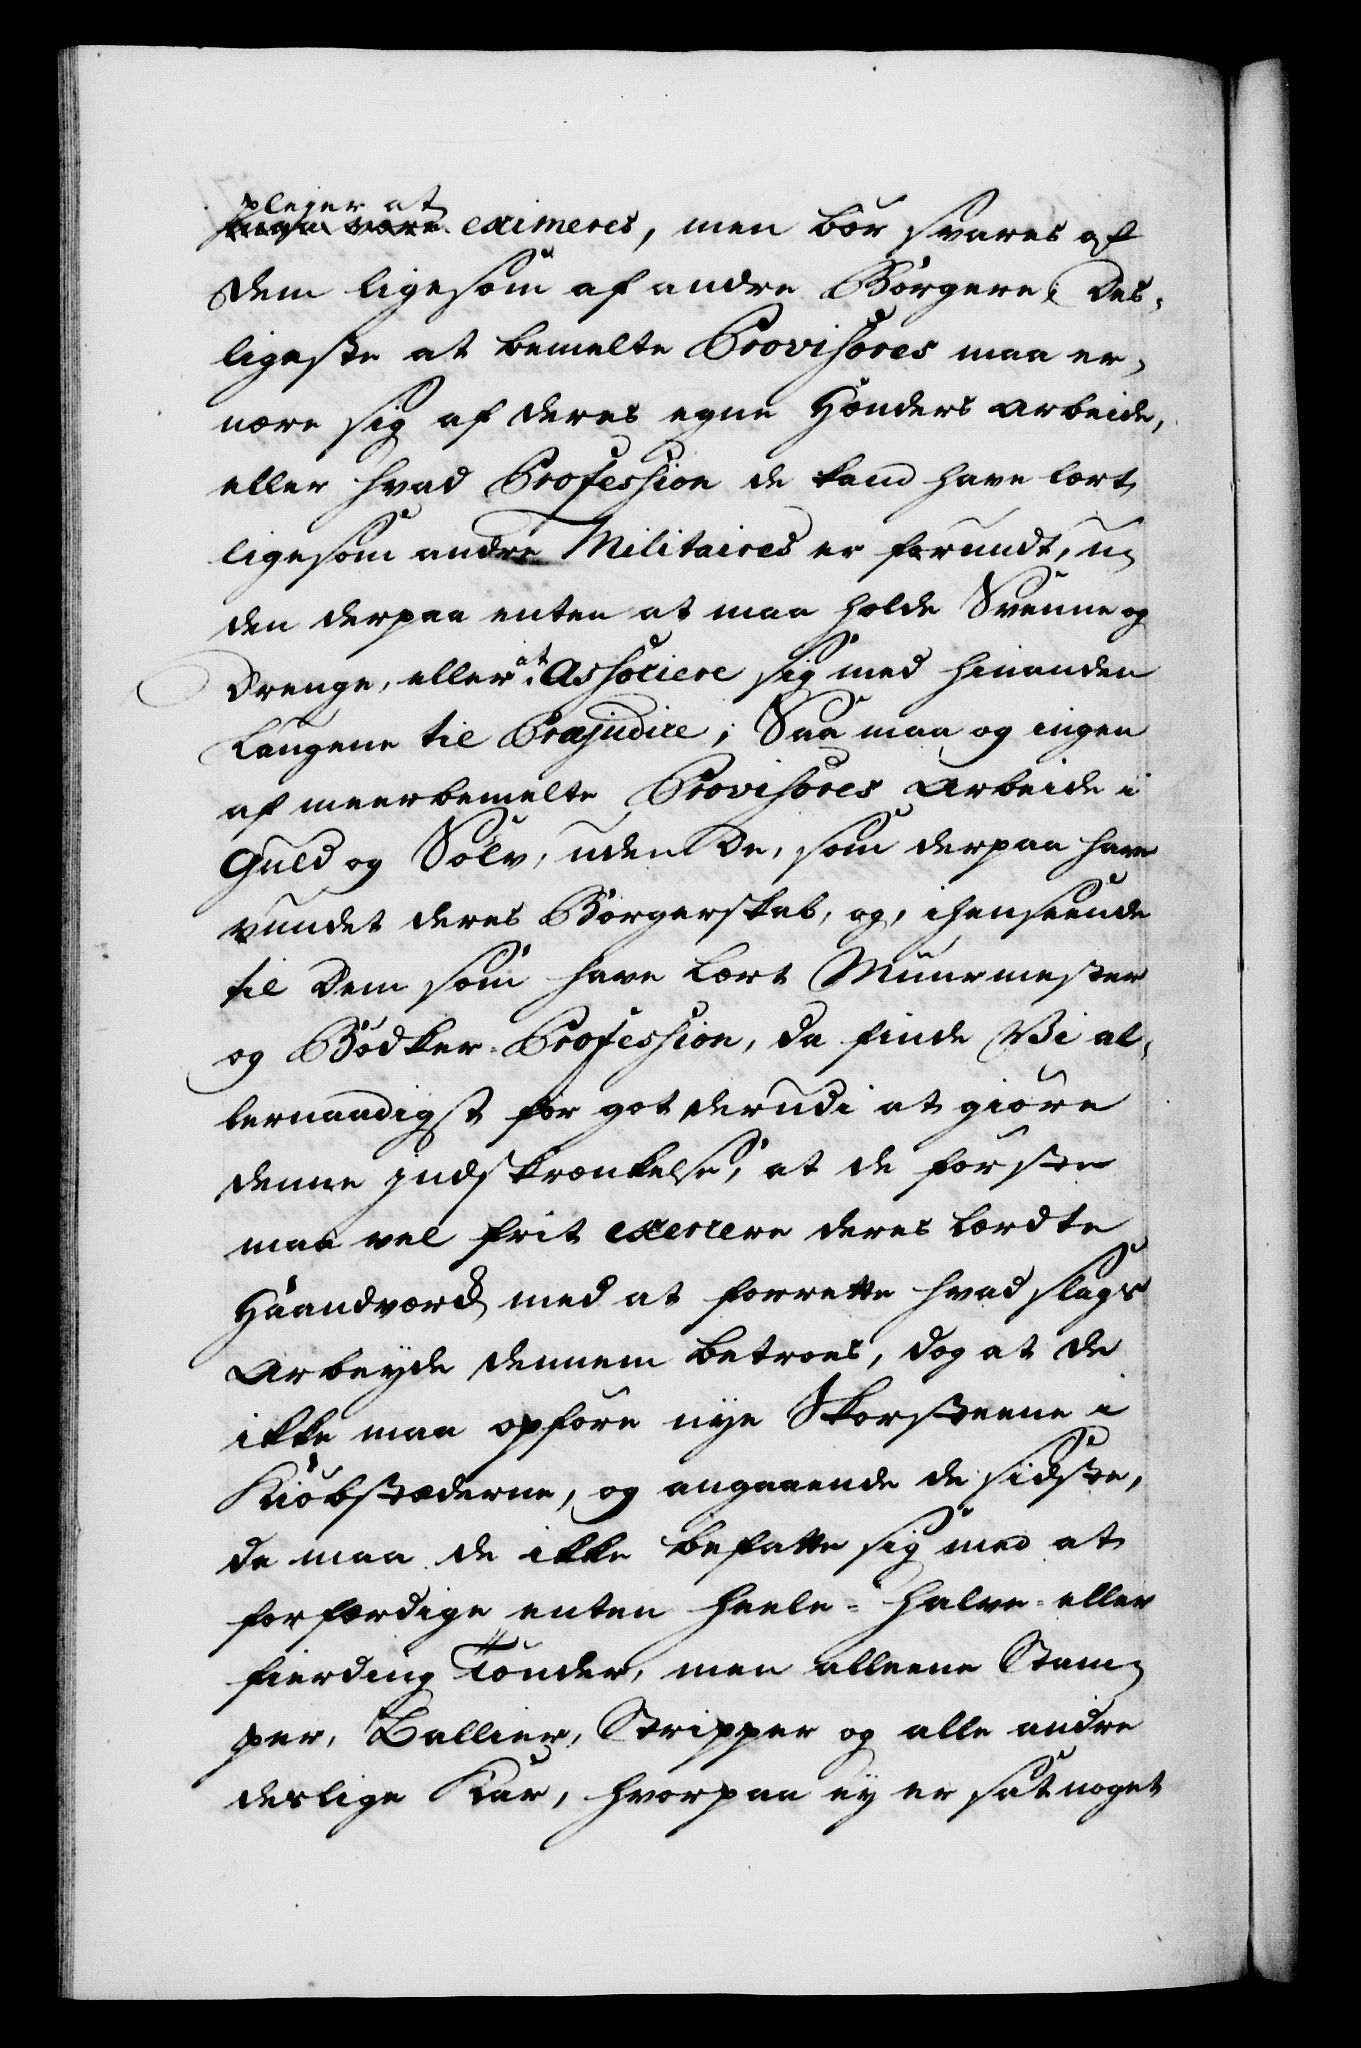 plejer at
eximeres, men bør svares af
dem ligesom af andre Borgere; Des-
ligeste at bemelte Provisores maa er-
nære sig af deres egne Hænders Arbeide,
eller hvad Profession de kand have lært
ligesom andre Militaires er forundt, u-
den derpaa enten at maa holde Svenne og
Drenge, eller at Associere sig med hinanden
Laugene til Præjudice; Saa maa og ingen
af meerbemelte Provisores Arbeide i
Guld og Sølv, uden De, som derpaa have
vundet deres Borgerskab, og, ihenseende
til Dem som have lært Muurmester
og Bødker-Profession, da finde Vi al-
lernaadigst for got derudi at giøre
denne Indskrænkelse, at de første
maa vel frit exercere deres lærdte
Haandværck med at forrette hvad slags
Arbeyde dennem betroes, dog at de
ikke maa opføre nye Skorsteene i
Kiøbstæderne, og angaaende de sidste,
da maa de ikke befatte sig med at
forfærdige enten Heele- halve- eller
fierding Tønder, men alleene Stam-
per, Ballier, Stripper og alle andre
deslige Kar, hvorpaa ey er sat noget